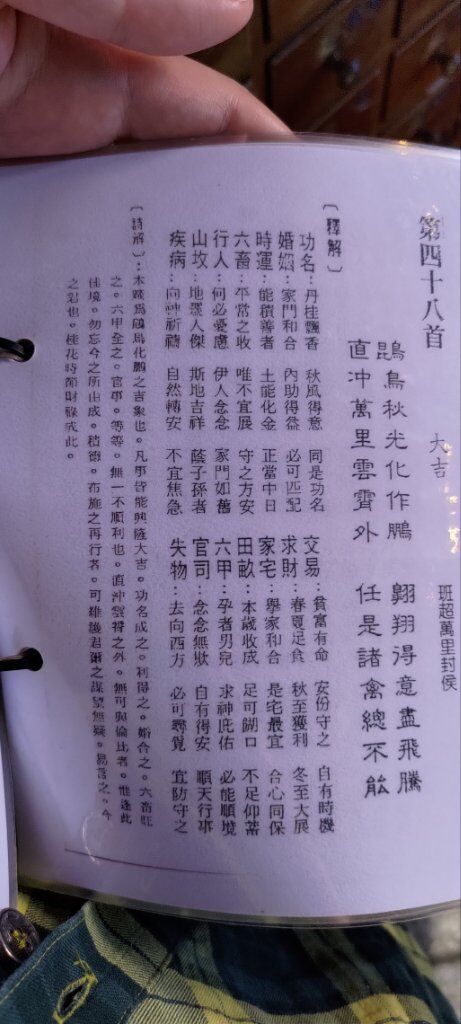 第四十八首 大吉 班超萬里封侯
鵾鳥秋光化作鵬 翺翔得意盡飛騰
直冲萬里雲霄外 任是諸禽總不能
〔釋解〕
功名：丹桂飄香 秋風得意 同是功名 交易：貧富有命 安份守之 自有時機
婚姻：家門和合 內助得益 必可匹配 求財：春夏足食 秋至獲利 冬至大展
時運：能積善者 土能化金 正當中日 家宅：舉家和合 是宅最宜 合心同保
六畜：平常之收 唯不宜展 守之方安 田畝：本歲收成 足可餬口 不足仰蓄
行人：何必憂慮 伊人念念 家門如舊 六甲：孕者男兒 求神庇佑 必能順境
山坟：地靈人傑 斯地吉祥 蔭子孫者 官司：念念無欺 自有得安 順天行事
疾病：向神祈禱 自然轉安 不宜焦急 失物：去向西方 必可尋覓 宜防守之
〔詩解〕：本籤爲鵾鳥化鵬之吉象也。凡事皆能興隆大吉。功名成之。利得之。婚合之。六畜旺
之。六甲全之。官事。等等。無一不順利也。直沖雲霄之外。無可與倫比者。惟逢此
佳境。勿忘今之所由成。積德。布施之再行者。可維護君爾之謀望無疑。易言之。今
之君也。桂花時節財祿戒此。